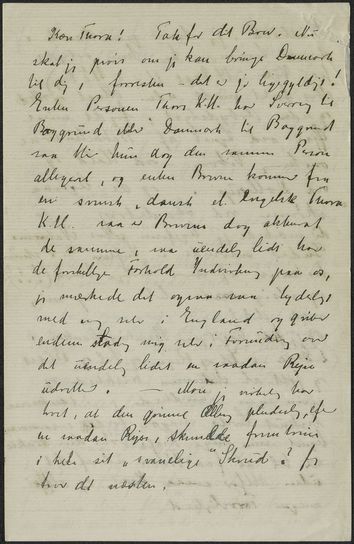 Kære Thora! Tak for dit Brev. Nu
skal jeg prøve om jeg kan bringe Danmark
til dig, forresten det er jo ligegyldigt!
Enten Personen Thora K.M. har Sverrig til
Baggrund eller Danmark til Baggrund
saa bli'r hun dog den samme Person
alligevel, og enten Breve komme fra
en svensk, dansk el. Engelsk Thora
K.M. saa er Brevene dog akkurat
de samme, saa uendelig lidt har
de forskellige Forhold Indvirkning paa os,
jeg mærkede det ogsaa saa tydeligt
med mig selv i England og griber
endnu stadig mig selv i Forundring over
det uendelig lidet en saadan Rejse
udretter. — Mon jeg virkelig har
troet, at den grimme Ælling pludselig, efter
en saadan Rejse, skulde
i hele sit "svanelige" Skrud? Jeg
tror det næsten.